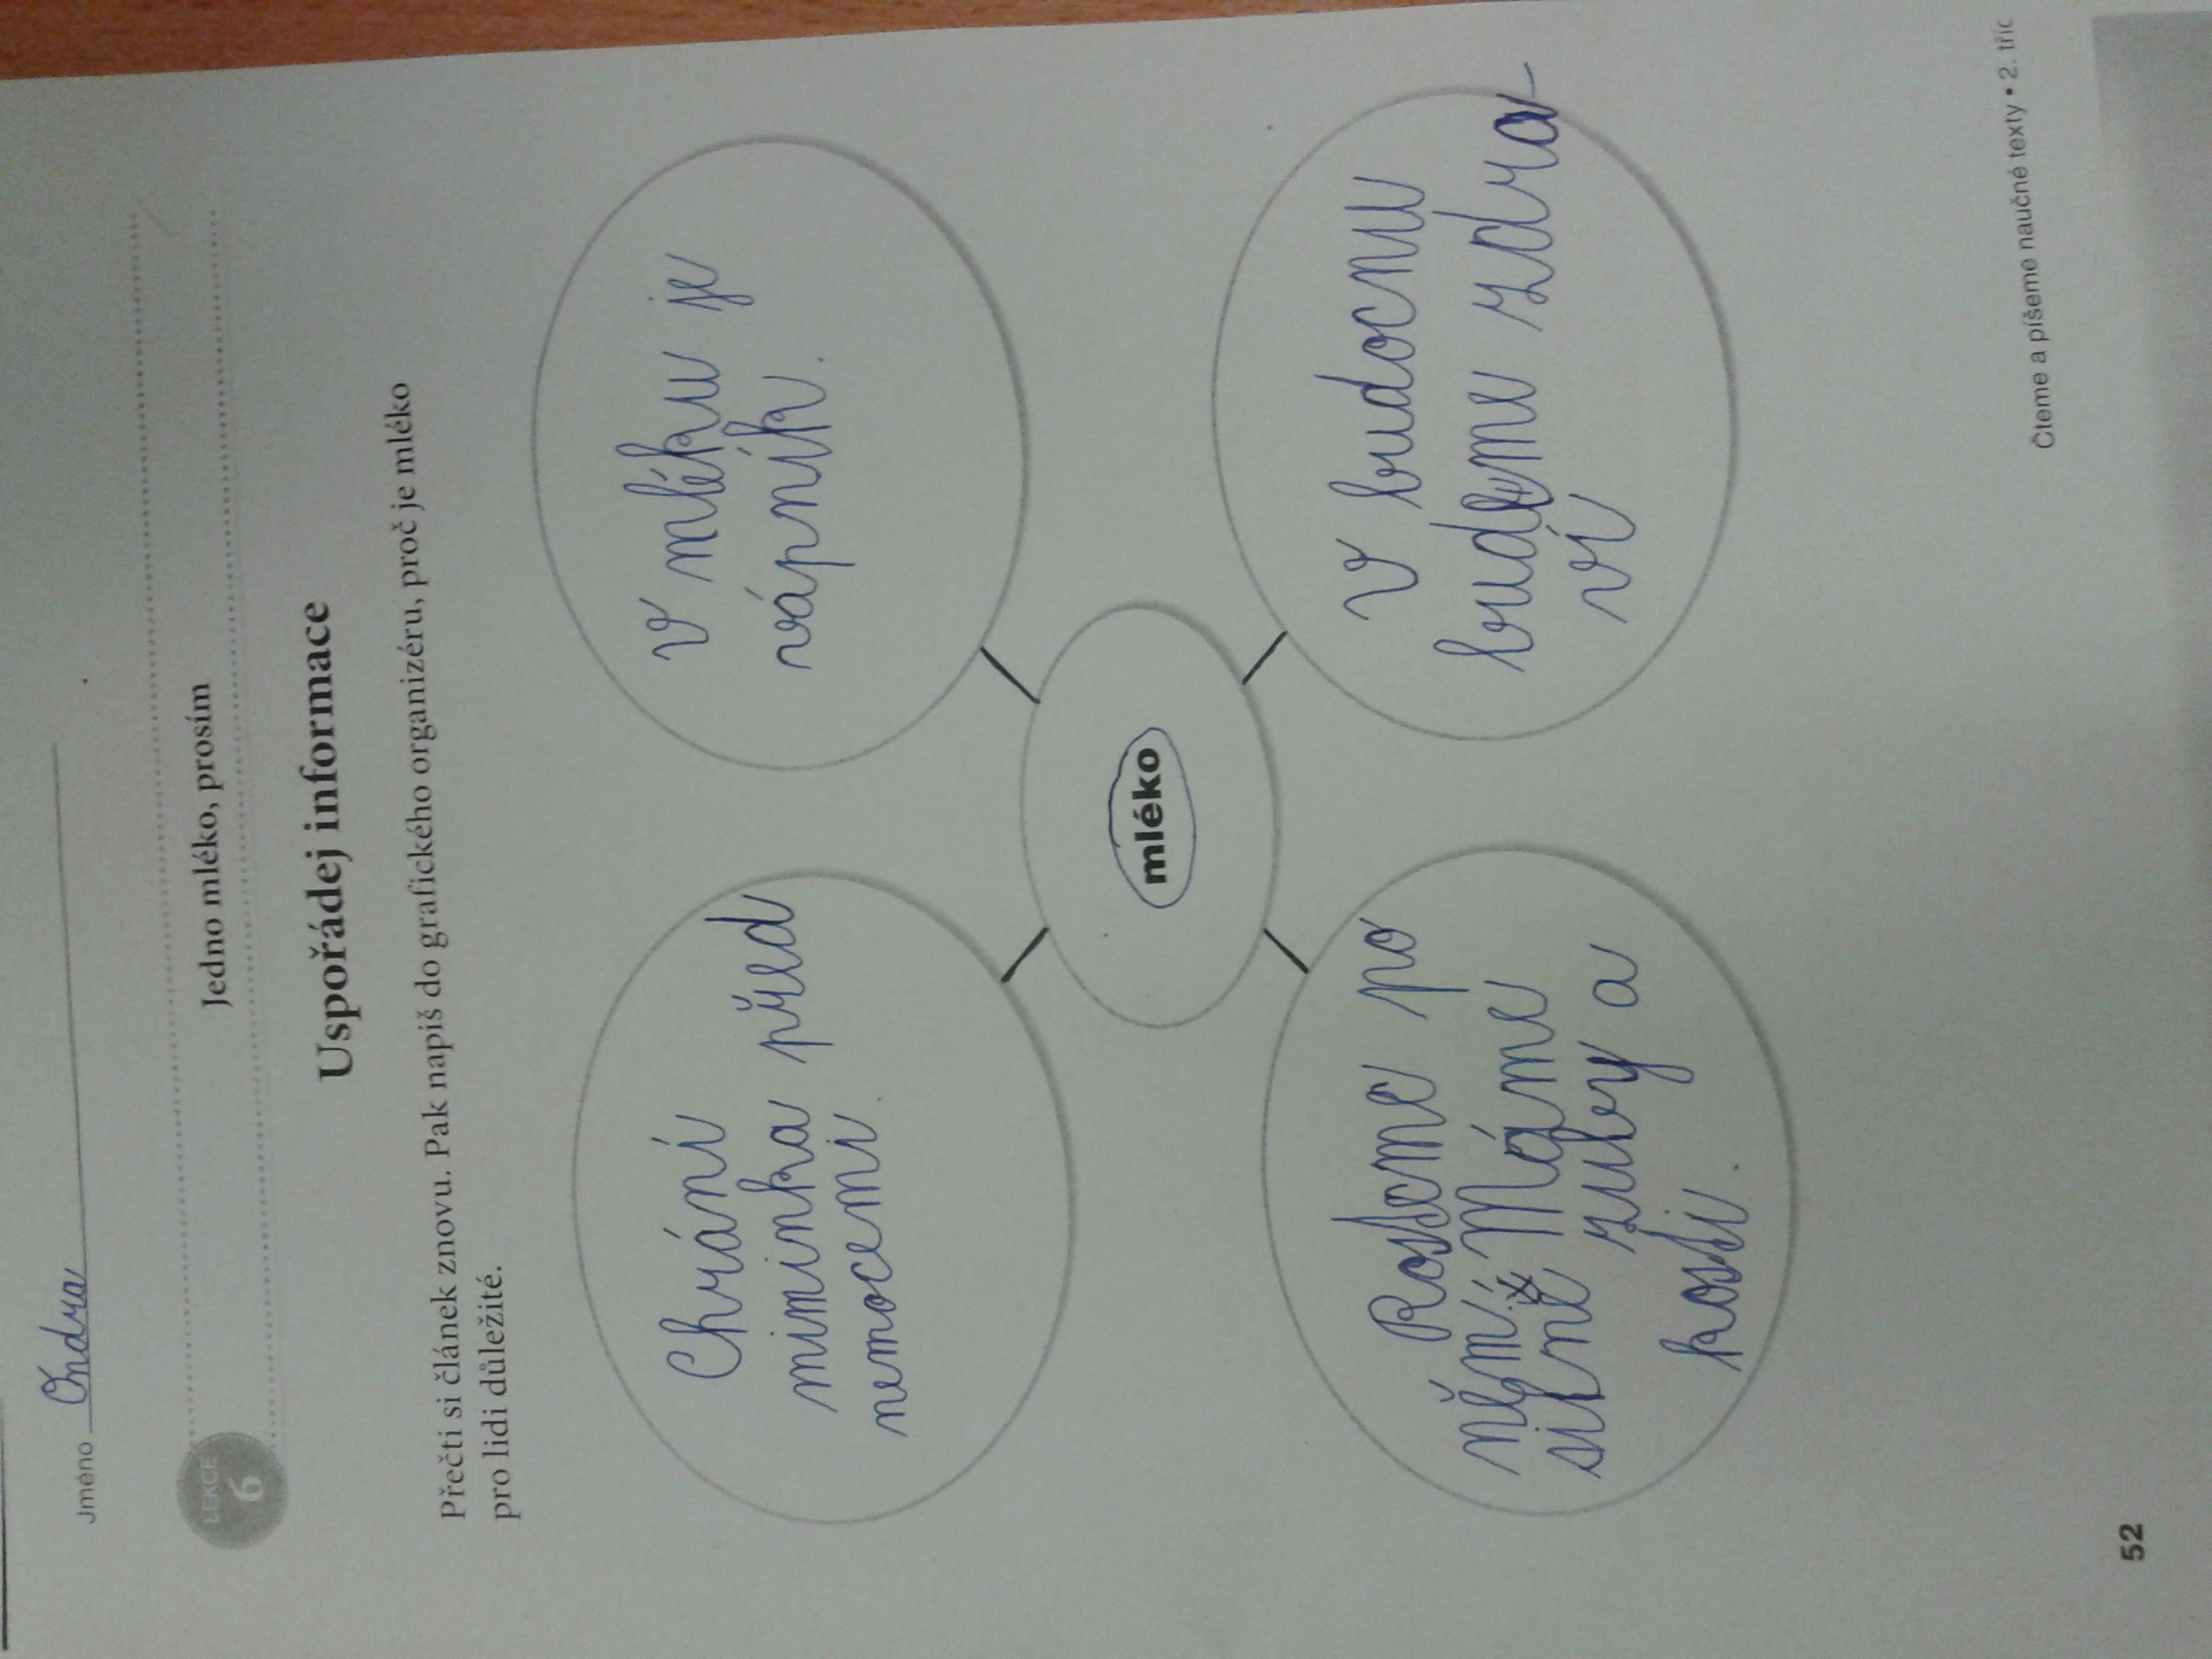 Jméno Ondra
LEKCE
6
Jedno mléko, prosím
Uspořádej informace
Přečti si článek znovu. Pak napiš do grafického organizéru, proč je mléko
pro lidi důležité.
Chrání
miminka před
nemocemi.
V mléku je
vápník.
mléko
Rosteme po
něm. Máme
silné zuby a
kosti.
V budocnu
budeme zdra
ví
52
Čteme a píšeme naučné texty • 2. tříd